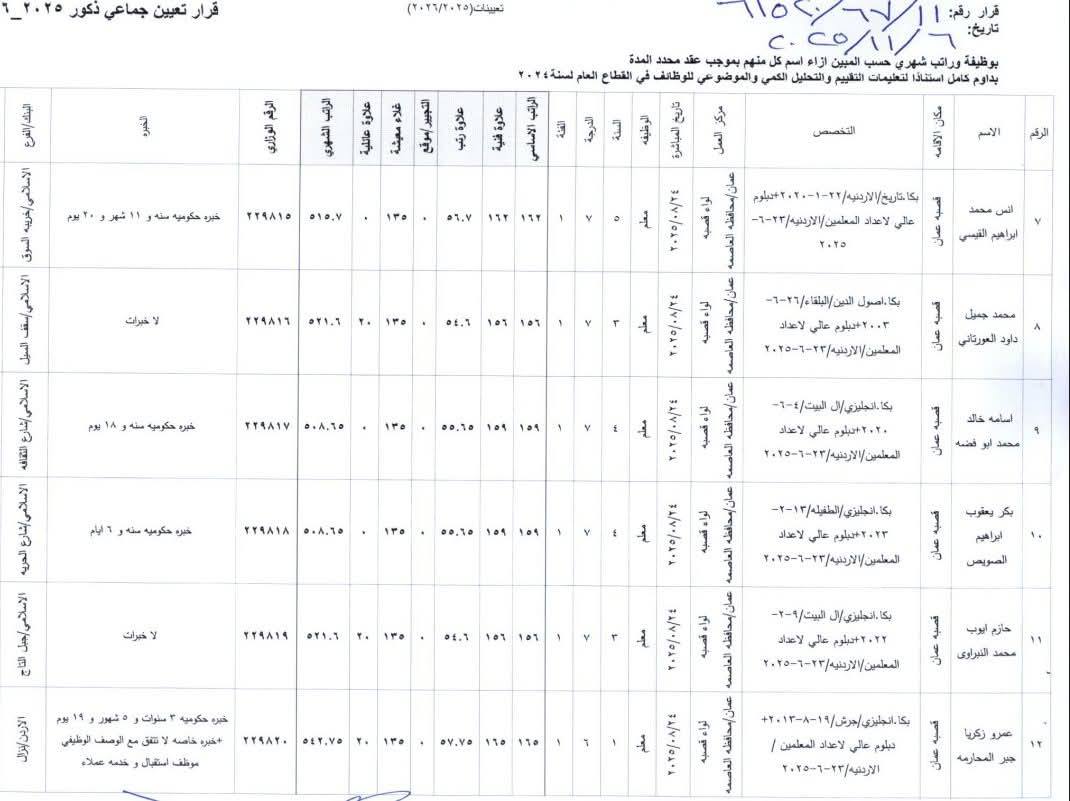 قرار تعيين جماعي ذكور ٢٠٢٥_٦
تعيينات(٢٠٢٦/٢٠٢٥)
قرار رقم:
تاريخ: ٢٠٢٥/١١/٦
بوظيفة وراتب شهري حسب المبين ازاء اسم كل منهم بموجب عقد محدد المدة
بدوام كامل استنادًا لتعليمات التقييم والتحليل الكمي والموضوعي للوظائف في القطاع العام لسنة ٢٠٢٤
الرقم الاسم مكان الاقامه التخصص مركز العمل تاريخ المباشرة الوظيفه السنة الدرجة الفئة الراتب الاساسي علاوة فنية علاوة رتب التجيير/موقع غلاء معيشة علاوة عائلية الراتب الشهري الرقم الوزاري الخبره البنك/الفرع
٧ انس محمد ابراهيم القيسي قصبة عمان بكا.تاريخ/الاردنيه/٢٢-١-٢٠٢٠+دبلوم عالي لاعداد المعلمين/الاردنيه/٢٣-٦-٢٠٢٥ عمان/محافظه العاصمه لواء قصبه ٢٠٢٥/٠٨/٢٤ معلم ٥ ٧ ١ ١٦٢ ١٦٢ ٥٦.٧ ٠ ١٣٥ ٠ ٥١٥.٧ ٢٢٩٨١٥ خبره حكوميه سنه و ١١ شهر و ٢٠ يوم الاسلامي/خريبه السوق
٨ محمد جميل داود العورتاني قصبة عمان بكا.اصول الدين/البلقاء/٢٦-٦-٢٠٠٣+دبلوم عالي لاعداد المعلمين/الاردنيه/٢٣-٦-٢٠٢٥ عمان/محافظه العاصمه لواء قصبه ٢٠٢٥/٠٨/٢٤ معلم ٣ ٧ ١ ١٥٦ ١٥٦ ٥٤.٦ ٠ ١٣٥ ٢٠ ٥٢١.٦ ٢٢٩٨١٦ لا خبرات الاسلامي/سقف السيل
٩ اسامه خالد محمد ابو فضه قصبة عمان بكا.انجليزي/ال البيت/٤-٦-٢٠٢٠+دبلوم عالي لاعداد المعلمين/الاردنيه/٢٣-٦-٢٠٢٥ عمان/محافظه العاصمه لواء قصبه ٢٠٢٥/٠٨/٢٤ معلم ٤ ٧ ١ ١٥٩ ١٥٩ ٥٥.٦٥ ٠ ١٣٥ ٠ ٥٠٨.٦٥ ٢٢٩٨١٧ خبره حكوميه سنه و ١٨ يوم الاسلامي/شارع الثقافه
١٠ بكر يعقوب ابراهيم الصويص قصبة عمان بكا.انجليزي/الطفيله/١٣-٢-٢٠٢٣+دبلوم عالي لاعداد المعلمين/الاردنيه/٢٣-٦-٢٠٢٥ عمان/محافظه العاصمه لواء قصبه ٢٠٢٥/٠٨/٢٤ معلم ٤ ٧ ١ ١٥٩ ١٥٩ ٥٥.٦٥ ٠ ١٣٥ ٠ ٥٠٨.٦٥ ٢٢٩٨١٨ خبره حكوميه سنه و ٦ ايام الاسلامي/شارع الحريه
١١ حازم ايوب محمد النبراوى قصبة عمان بكا.انجليزي/ال البيت/٩-٢-٢٠٢٢+دبلوم عالي لاعداد المعلمين/الاردنيه/٢٣-٦-٢٠٢٥ عمان/محافظه العاصمه لواء قصبه ٢٠٢٥/٠٨/٢٤ معلم ٣ ٧ ١ ١٥٦ ١٥٦ ٥٤.٦ ٠ ١٣٥ ٢٠ ٥٢١.٦ ٢٢٩٨١٩ لا خبرات الاسلامي/جبل التاج
١٢ عمرو زكريا جبر المحارمه قصبة عمان بكا.انجليزي/جرش/١٩-٨-٢٠١٣+ دبلوم عالي لاعداد المعلمين /الاردنيه/٢٣-٦-٢٠٢٥ عمان/محافظه العاصمه لواء قصبه ٢٠٢٥/٠٨/٢٤ معلم ١ ٦ ١ ١٦٥ ١٦٥ ٥٧.٧٥ ٠ ١٣٥ ٢٠ ٥٤٢.٧٥ ٢٢٩٨٢٠ خبره حكوميه ٣ سنوات و ٥ شهور و ١٩ يوم +خبره خاصه لا تتفق مع الوصف الوظيفي موظف استقبال و خدمه عملاء الاردن/نزال